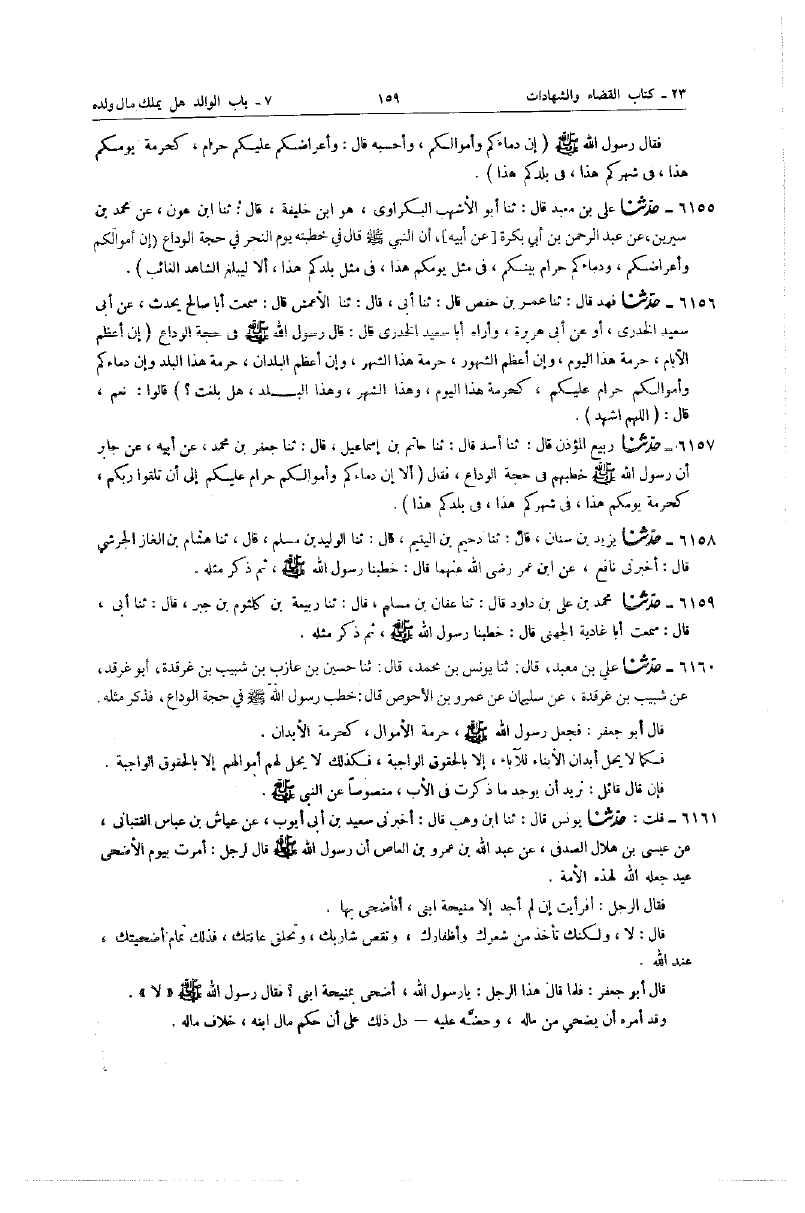 ٢٣ - كتاب القضاء والشهادات ١٥٩ ٧ - باب الوالد هل يملك مال ولده
فقال رسول الله ﷺ ( إن دماءكم وأموالكم ، وأحسبه قال : وأعراضكم عليكم حرام ، كحرمة يومكم
هذا ، فى شهركم هذا ، فى بلدكم هذا ) .
٦١٥٥ - حدثنا على بن معبد قال : ثنا أبو الأشهب البكراوى ، هو ابن خليفة ، قال : ثنا ابن عون ، عن محمد بن
سيرين، عن عبد الرحمن بن أبي بكرة [عن أبيه]، أن النبي ﷺ قال في خطبته يوم النحر في حجة الوداع (إن أموالكم
وأعراضكم ، ودماءكم حرام بينكم ، فى مثل يومكم هذا ، فى مثل بلدكم هذا ، ألا ليبلغ الشاهد الغائب ) .
٦١٥٦ - حدثنا فهد قال : ثنا عمر بن حفص قال : ثنا أبى ، قال : ثنا الأعمش قال : سمعت أبا صالح يحدث ، عن أبى
سعيد الخدرى ، أو عن أبى هريرة ، وأراه أبا سعيد الخدرى قال : قال رسول الله ﷺ فى حجة الوداع ( إن أعظم
الأيام ، حرمة هذا اليوم ، وإن أعظم الشهور ، حرمة هذا الشهر ، وإن أعظم البلدان ، حرمة هذا البلد وإن دماءكم
وأموالكم حرام عليكم ، كحرمة هذا اليوم ، وهذا الشهر ، وهذا البلد ، هل بلغت ؟ ) قالوا : نعم ،
قال : ( اللهم اشهد ) .
٦١٥٧ - حدثنا ربيع المؤذن قال : ثنا أسد قال : ثنا حاتم بن إسماعيل ، قال : ثنا جعفر بن محمد ، عن أبيه ، عن جابر
أن رسول الله ﷺ خطبهم فى حجة الوداع ، فقال ( ألا إن دماءكم وأموالكم حرام عليكم إلى أن تلقوا ربكم ،
كحرمة يومكم هذا ، فى شهركم هذا ، فى بلدكم هذا ) .
٦١٥٨ - حدثنا يزيد بن سنان ، قال : ثنا دحيم بن اليتيم ، قال : ثنا الوليد بن مسلم ، قال ، ثنا هشام بن الغاز الجرشي
قال : أخبرنى نافع ، عن ابن عمر رضى الله عنهما قال : خطبنا رسول الله ﷺ ، ثم ذكر مثله .
٦١٥٩ - حدثنا محمد بن على بن داود قال : ثنا عفان بن مسلم ، قال : ثنا ربيعة بن كلثوم بن جبر ، قال : ثنا أبى ،
قال : سمعت أبا غادية الجهنى قال : خطبنا رسول الله ﷺ ، ثم ذكر مثله .
٦١٦٠ - حدثنا علي بن معبد، قال: ثنا يونس بن محمد، قال: ثنا حسين بن عازب بن شبيب بن غرقدة، أبو غرقد،
عن شبيب بن غرقدة ، عن سليمان عن عمرو بن الأحوص قال: خطب رسول الله ﷺ في حجة الوداع، فذكر مثله.
قال أبو جعفر : فجعل رسول الله ﷺ ، حرمة الأموال ، كحرمة الأبدان .
فكما لا يحل أبدان الأبناء للآباء ، إلا بالحقوق الواجبة ، فكذلك لا يحل لهم أموالهم إلا بالحقوق الواجبة .
فإن قال قائل : نريد أن يوجد ما ذكرت فى الأب ، منصوصاً عن النبى ﷺ .
٦١٦١ - قلت : حدثنا يونس قال : ثنا ابن وهب قال : أخبرنى سعيد بن أبى أيوب ، عن عياش بن عباس القتبانى ،
عن عيسى بن هلال الصدفى ، عن عبد الله بن عمرو بن العاص أن رسول الله ﷺ قال لرجل : أمرت بيوم الأضحى
عيد جعله الله لهذه الأمة .
فقال الرجل : أفرأيت إن لم أجد إلا منيحة ابنى ، أفأضحى بها .
قال : لا ، ولكنك تأخذ من شعرك وأظفارك ، وتقص شاربك ، وتحلق عانتك ، فذلك تمام أضحيتك ،
عند الله .
قال أبو جعفر : فلما قال هذا الرجل : يا رسول الله ، أضحى بمنيحة ابنى ؟ فقال رسول الله ﷺ « لا » .
وقد أمره أن يضحي من ماله ، وحضَّه عليه – دل ذلك على أن حكم مال ابنه ، خلاف ماله .